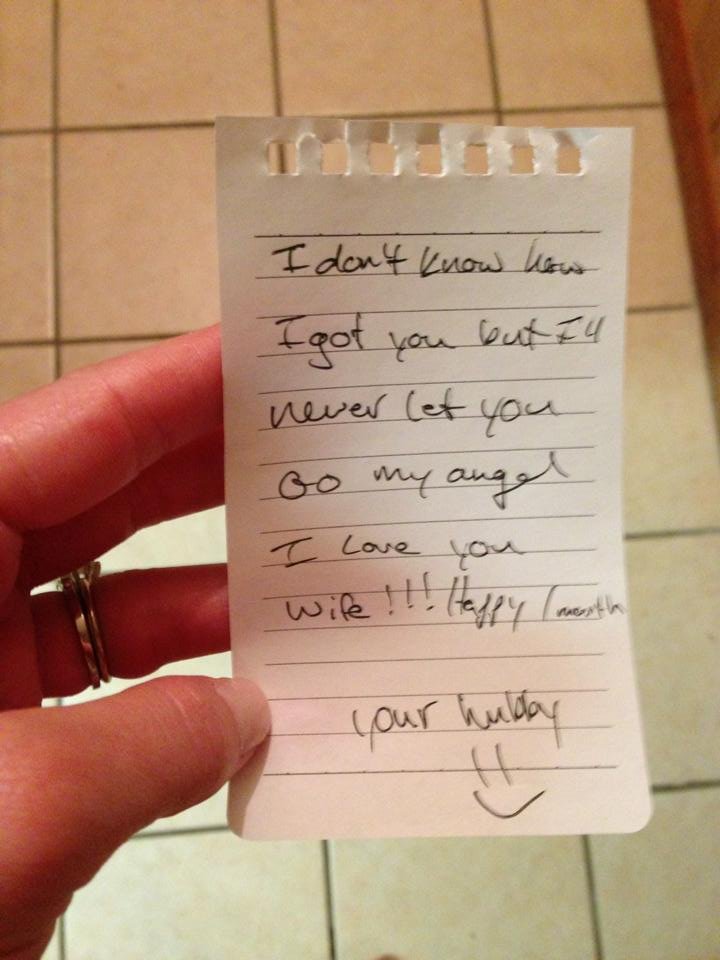 I don't know how
I got you but I'll
never let you
Go my angel
I Love you
Wife!!! Happy 1 month
your hubby